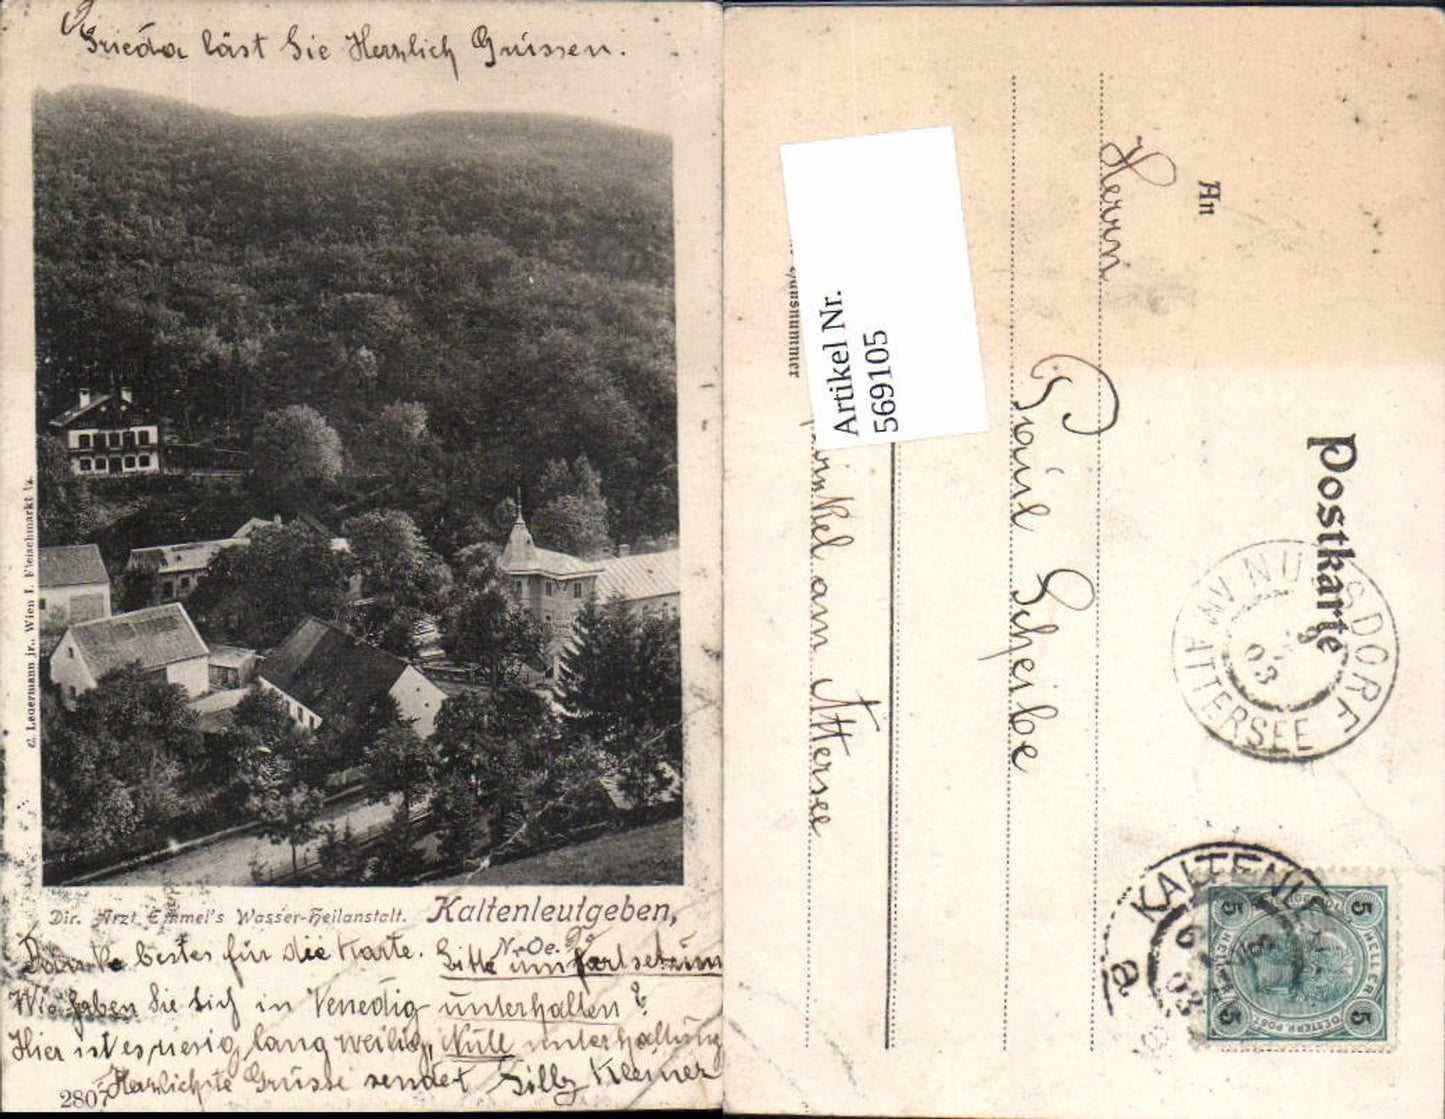 Frieda läst Sie Herzlich Grüssen.
C. Ledermann jr., Wien I. Fleischmarkt
Dir. Arzt Emmel's Wasser-Heilanstalt. Kaltenleutgeben,
N.-Oe.
Danke bestes für die Karte. Bitte um Fortsetzung
Wie haben Sie sich in Venedig unterhalten?
Hier ist es riesig langweilig, Null unterhaltung
Herzlichste Grüsse sendet Silly Kleiner
2807
Postkarte
An
Herrn
Paul Scheibe
winkel am Attersee
Hausnummer
Artikel Nr.
569105
NUSSDORF
AM ATTERSEE
03
KALTENL
6
03
a
5 5
5 5
HELLER HELLER
OESTERR. POST